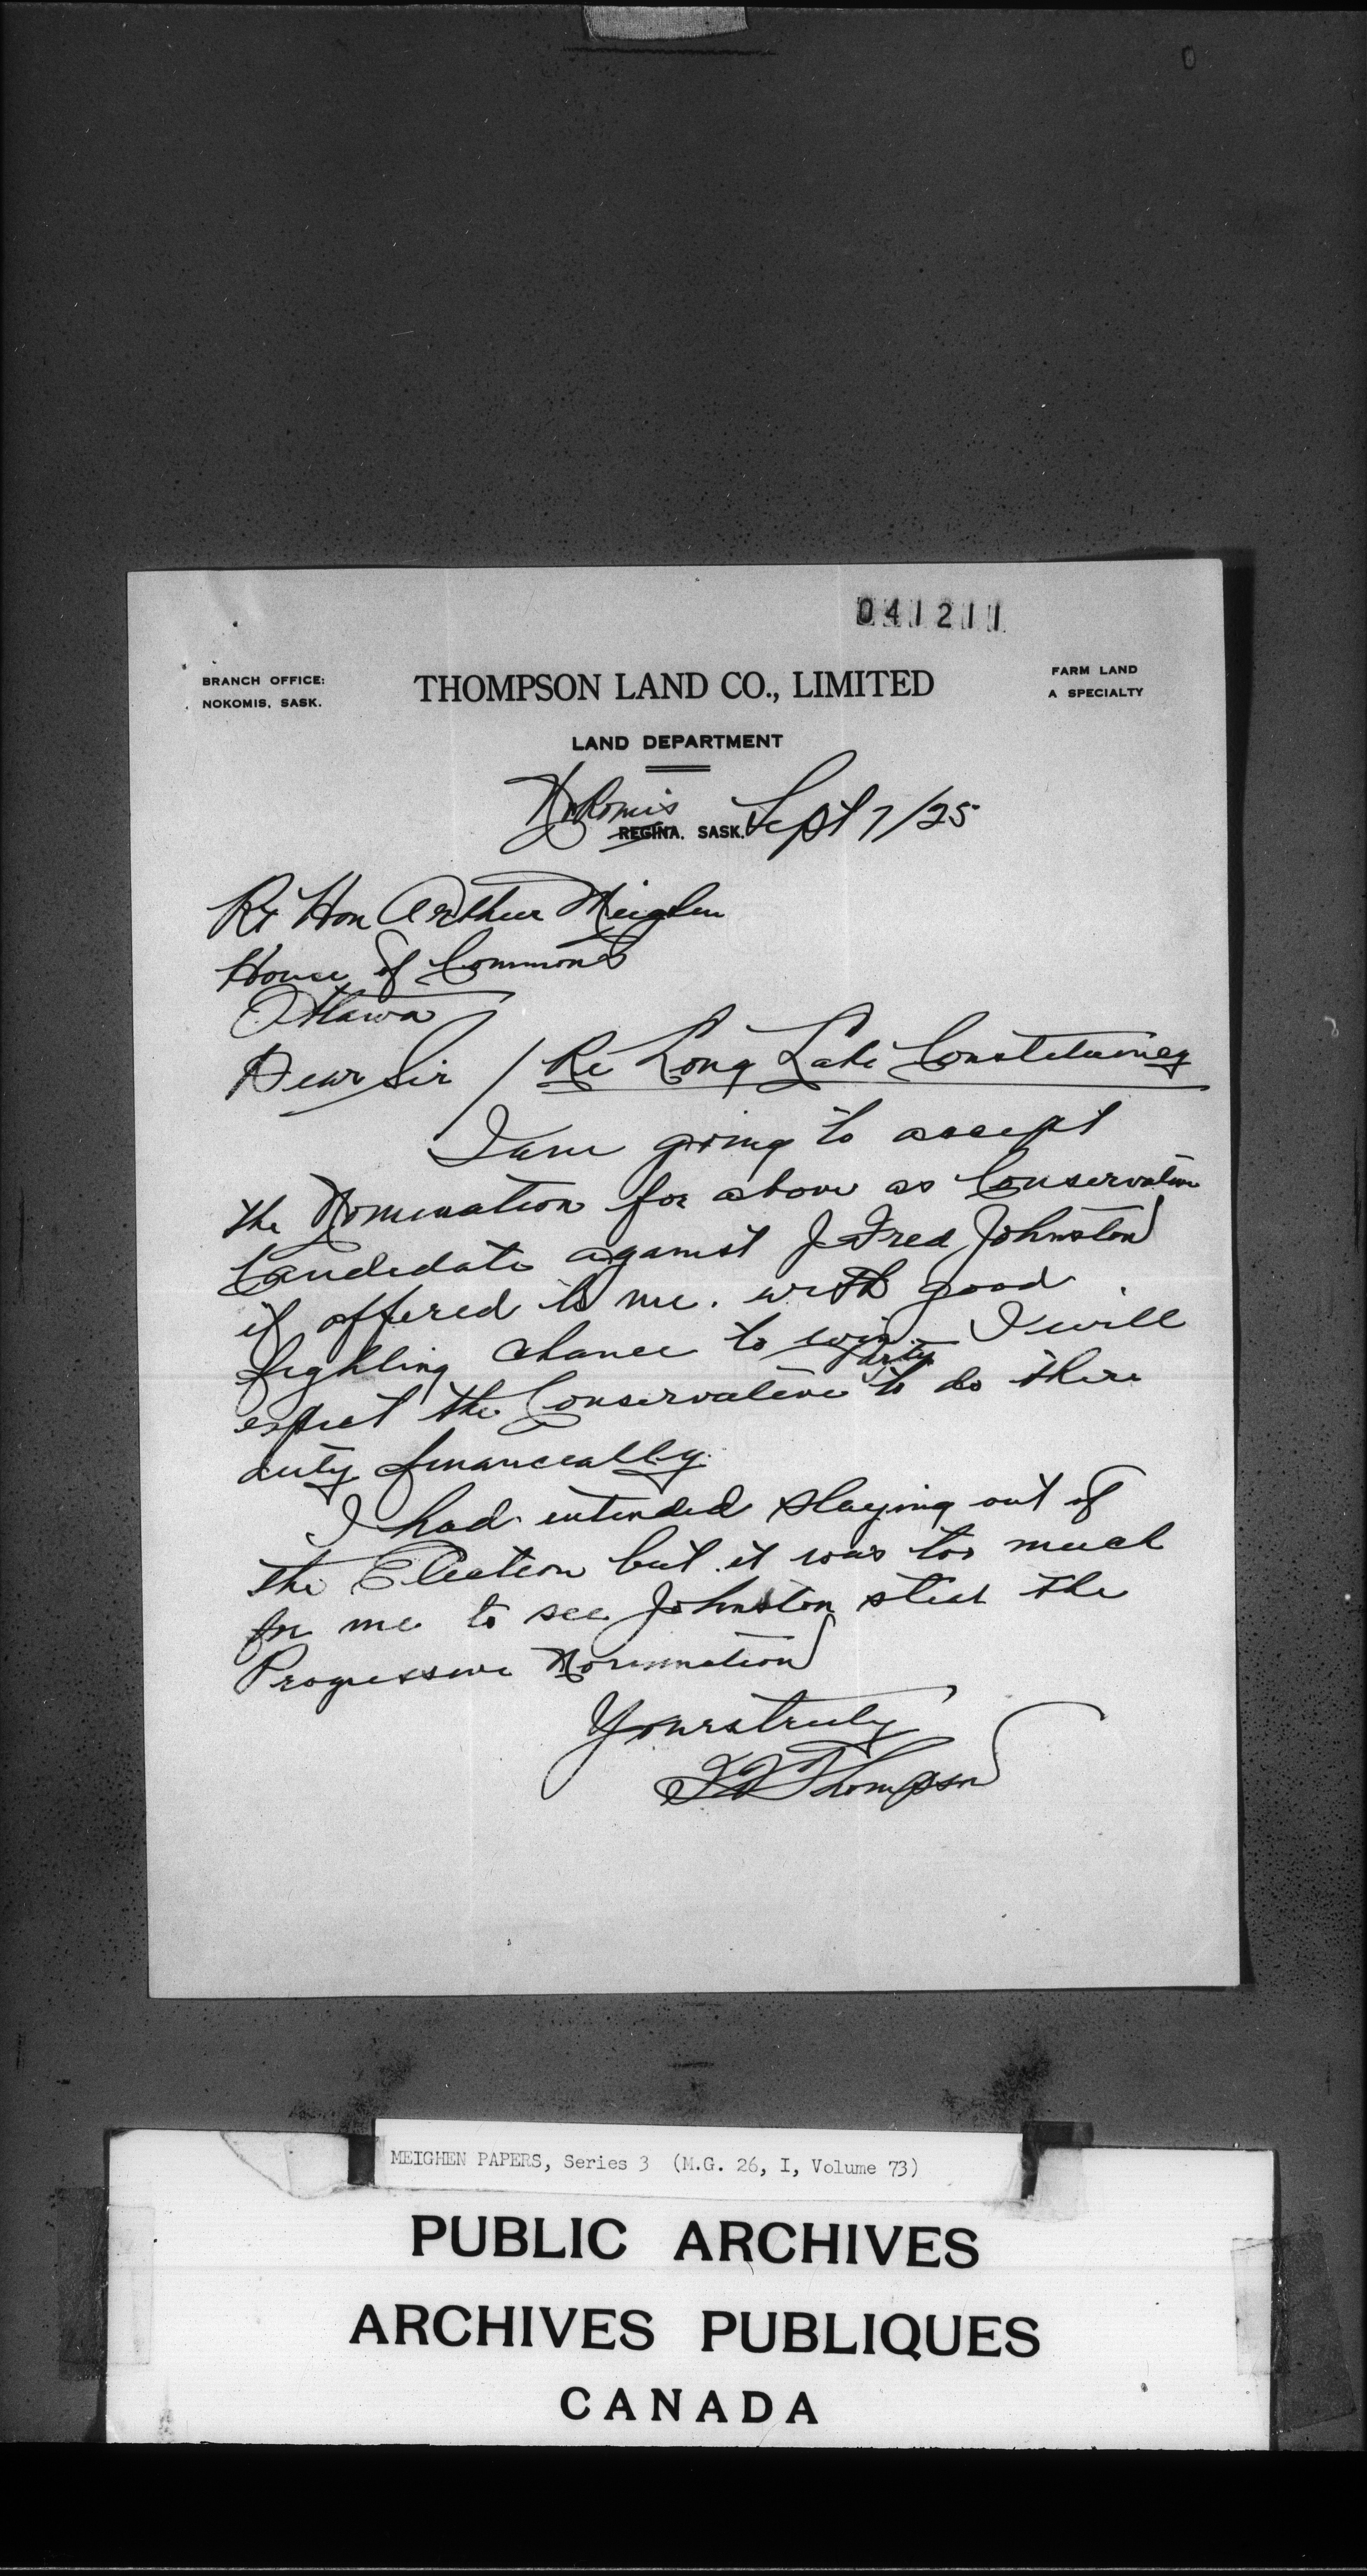 041211
BRANCH OFFICE:
NOKOMIS, SASK.
THOMPSON LAND CO., LIMITED
FARM LAND
A SPECIALTY
LAND DEPARTMENT
Nokomis
REGINA, SASK. Sept 7/25
Rt Hon Arthur Meighen
House of Commons
Ottawa
Dear Sir / Re Long Lake Constituency
I am going to accept
the Nomination for above as Conservative
Candidate against J Fred Johnston
if offered to me. with good
fighting chance to win. I will
expect the Conservative party to do there
duty financially.
I had intended staying out of
the Election but it was too much
for me to see Johnston the
Progressive Nomination
Yours truly
Thompson
MEIGHEN PAPERS, Series 3 (M.G. 26, I, Volume 73)
PUBLIC ARCHIVES
ARCHIVES PUBLIQUES
CANADA